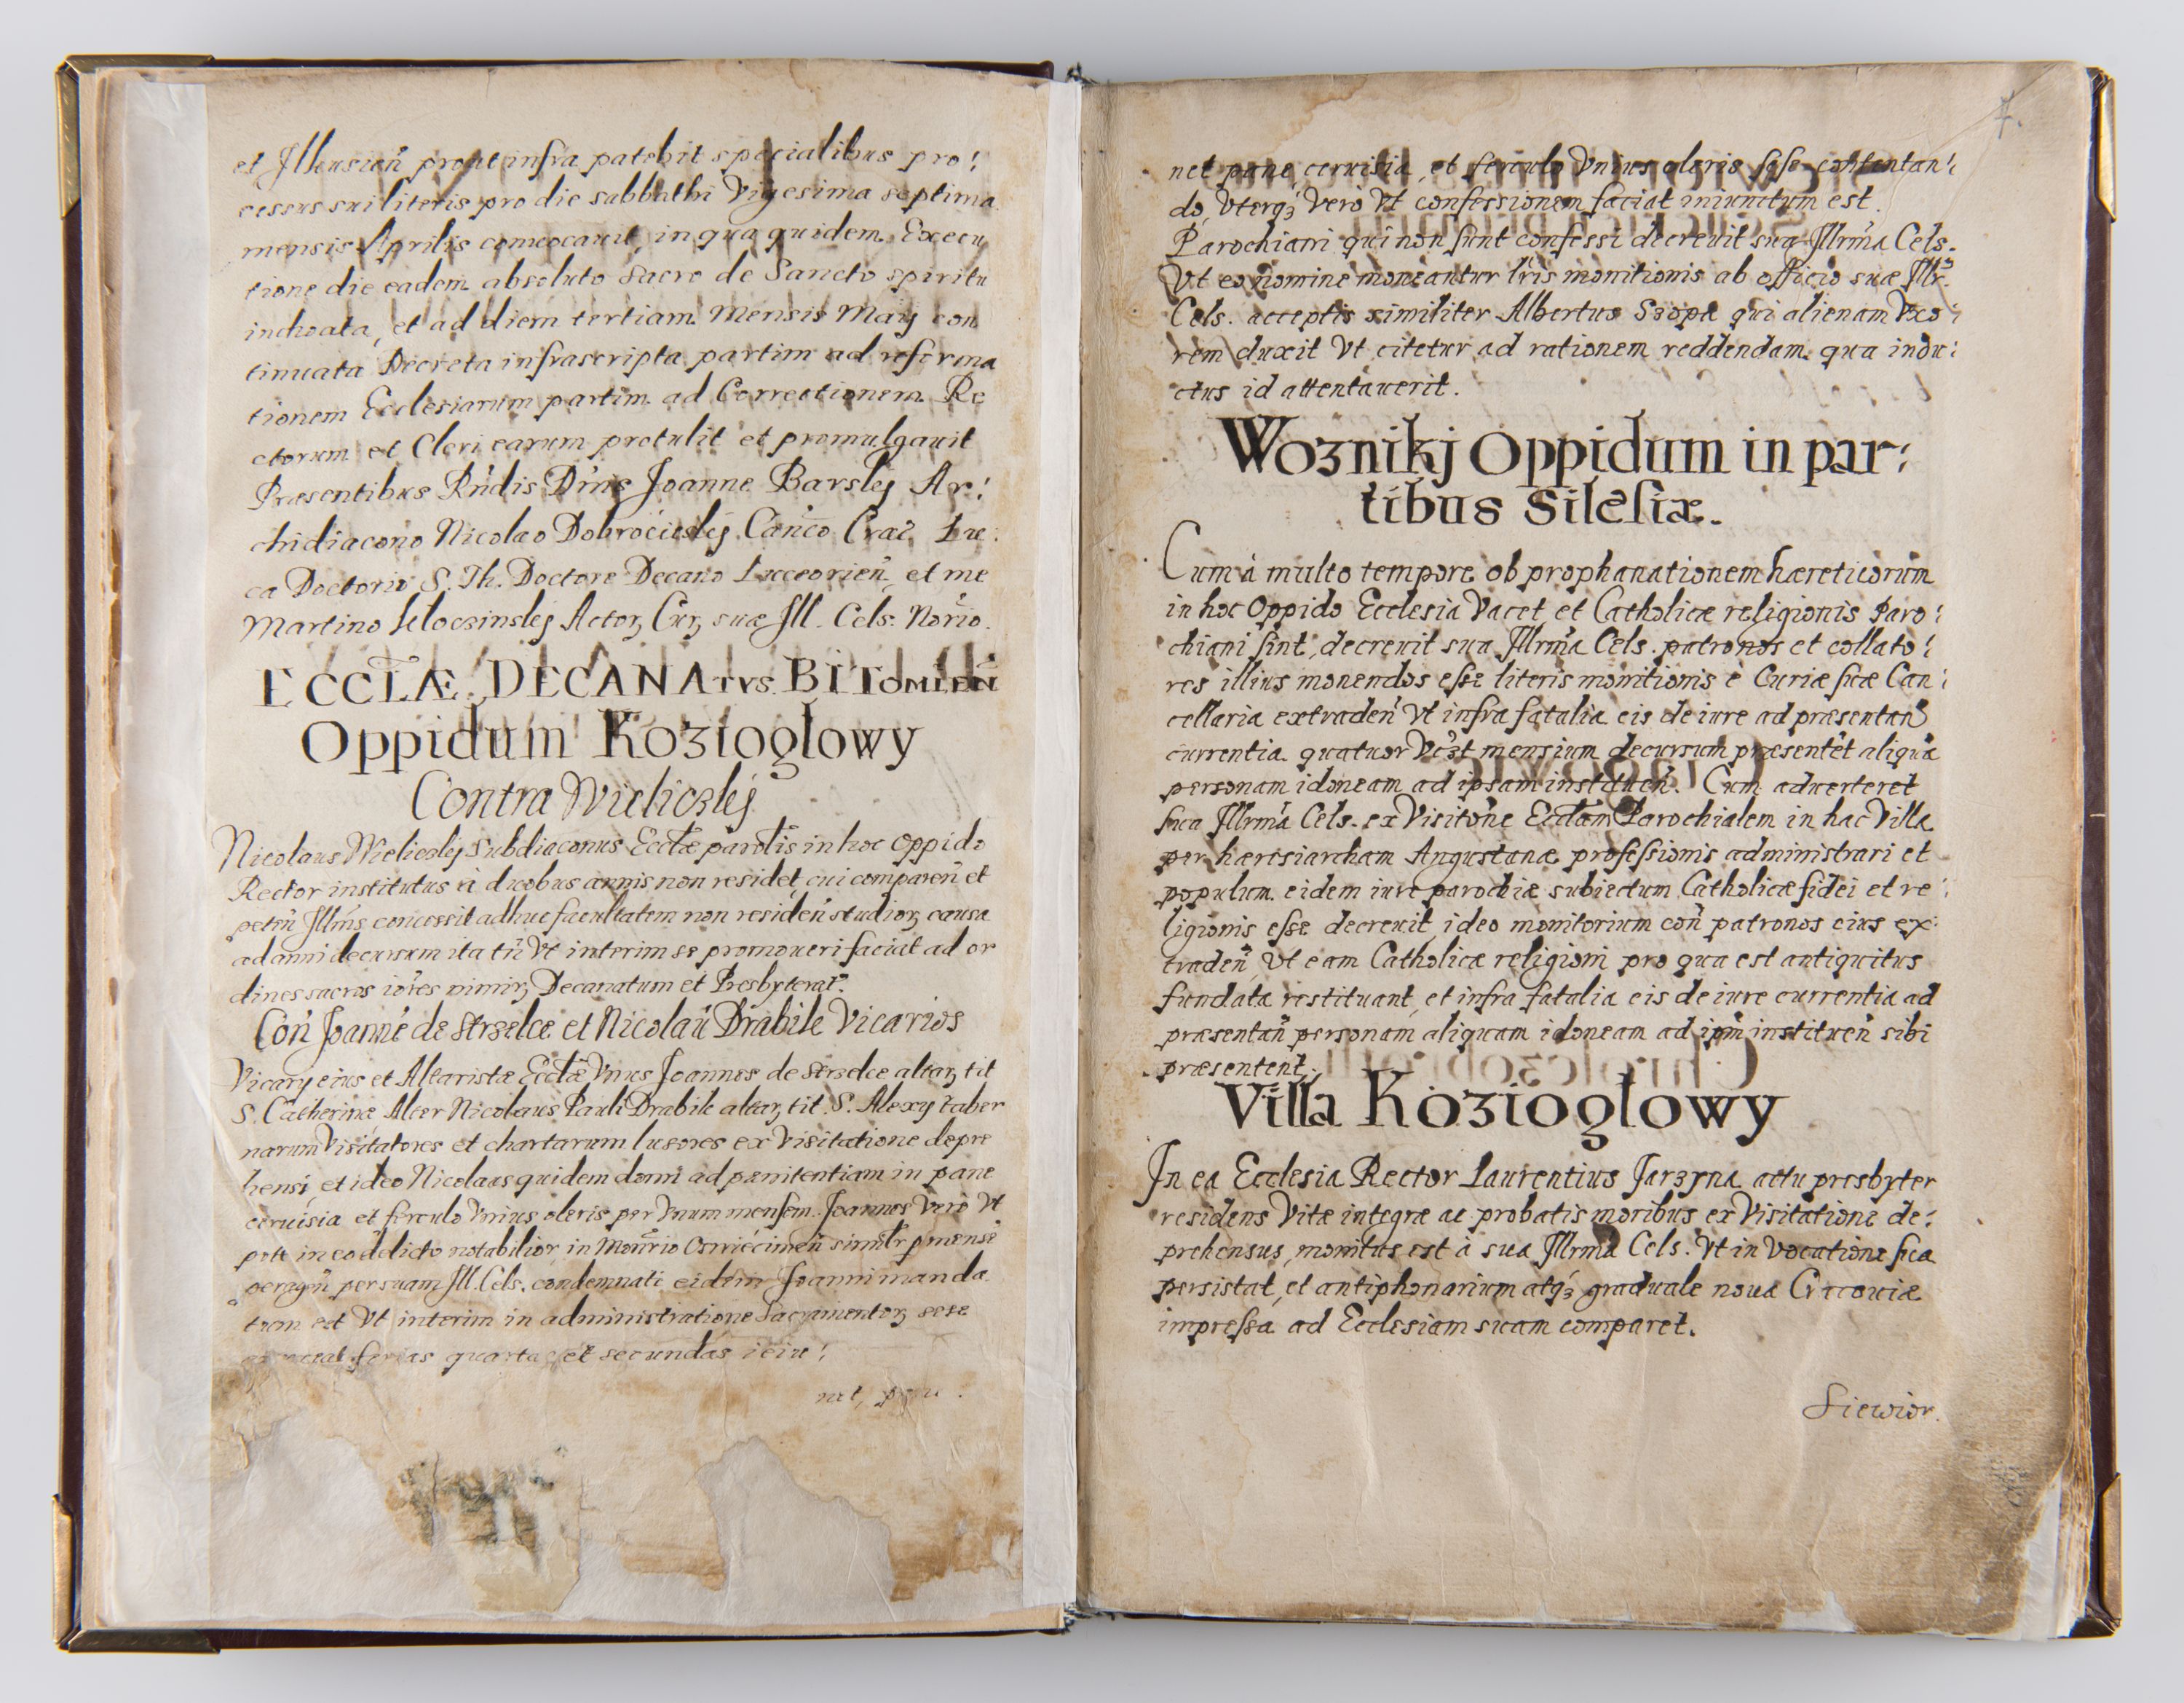 et Ilkusień prout infra patebit specialibus pro:
cessus sui literis pro die sabbathi Vigesima septima
mensis Aprilis conuocauit, in qua quidem Execu
tione die eadem absoluto Sacro de Sancto spiritu
inchoata, et ad diem tertiam Mensis Maij con
tinuata Decreta infrascripta partim ad reforma
tionem Ecclesiarum partim ad Correctionem Re
ctorum et Cleri earum protulit et promulgauit
Præsentibus Rńdis Dńis Joanne Barskj Ar:
chidiacono Nicolao Dobrocieskj Canco Crac Lu:
ca Doctoris S. Th. Doctore Decano Lucceorień, et me
Martino Kłoczinskj Actorꝫ Curꝫ suæ Ill. Cels. Norio.
ECCLÆ DECANATVS BITomień
Oppidum Koziogłowy
Contra Wieliczkj
Nicolaus Wieliczkj Subdiaconus Ecclæ parolis in hoc Oppido
Rector institutus à duobus annis non residet, cui compareń et
peteń Illms concessit adhuc facultatem non resideń studiorꝫ causa
ad anni decursum ita tń Vt interim se promoueri faciat ad or
dines sacros iores nimirꝫ Decanatum et Presbyterat.
Coń Joanné de Strzelce et Nicolaú Drabik Vicarios
Vicarij eius et Altaristæ Ecclæ Vnus Joannes de Strzelce altarꝫ tit
S. Catherinæ Alter Nicolaus Pauli Drabik altarꝫ tit. S. Alexij taber
narum Visitatores et chartarum lusores ex Visitatione depre
hensi, et ideo Nicolaus quidem domi ad pænitentiam in pane
ceruisia et ferculo Vnius oleris per Vnum mensem. Joannes Vero Vt
pote in eo delicto notabilior in Monrio Oswiecimeń similr p mensé
peragń per suam Ill. Cels. condemnati eidem Joanni manda
tum est Vt interim in administratione Sacramentorꝫ sese
ferias quartas et secundas ieiu:
net, pane
7.
net pane, ceruisia, et ferculo Vnius oleris sese contentan:
do, Vterqꝫ Vero Vt confessionem faciat iniunctum est.
Parochiani qui non sunt confessi decreuit sua Illrma Cels.
Vt eo nomine moneantur lris monitionis ab officio suæ Illr.
Cels. acceptis similiter Albertus Szopa qui alienam Vxo:
rem duxit Vt citetur ad rationem reddendam qua indu:
ctus id attentauerit.
Wozniki Oppidum in par:
tibus Silesiæ.
Cum à multo tempore ob prophanationem hæreticorum
in hoc Oppido Ecclesia Vacet et Catholicæ religionis Paro:
chiani sint, decreuit sua Illrma Cels. patronos et collato:
res illius monendos esse literis monitionis è Curiæ suæ Can:
cellaria extradeń Vt infra fatalia eis de iure ad præsentań
currentia quatuor Vczt mensium decursum præsentet aliquá
personam idoneam ad ipsam institueń. Cum aduerteret
sua Illrma Cels. ex Visitone Ecclam Parochialem in hac Villa
per hæresiarcham Augustanæ professionis administrari et
populum eidem iure parochiæ subiectum Catholicæ fidei et re:
ligionis esse decreuit, ideo monitorium coń patronos eius ex:
tradeń, Vt eam Catholicæ religioni pro qua est antiquitus
fundata restituant, et infra fatalia eis de iure currentia ad
præsentań personam aliquam idoneam ad ipm institueń sibi
præsentent.
Villa Koziogłowy
In ea Ecclesia Rector Laurentius Jarzyna actu presbyter
residens Vitæ integræ ac probatis moribus ex Visitatione de:
prehensus, monitus est à sua Illrma Cels. Vt in Vocatione sua
persistat, et antiphonarium atqꝫ graduale noua Cracouiæ
impressa ad Ecclesiam suam comparet.
Siewior.